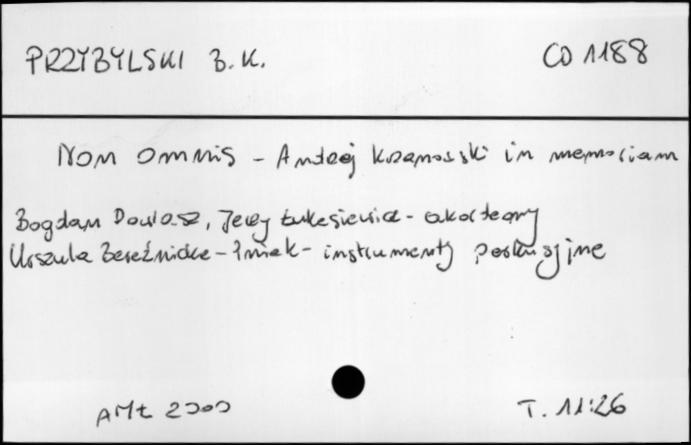 PRZYBYLSKI B.K. CD 1188
NON OMNIS - Andrzej Krzanowski in memoriam
Bogdan Dowlasz, Jerzy Łukasiewicz - akordeony
Urszula Bereźnicka - Pniak - instrumenty perkusyjne
AMŁ 2000 T. 11:26